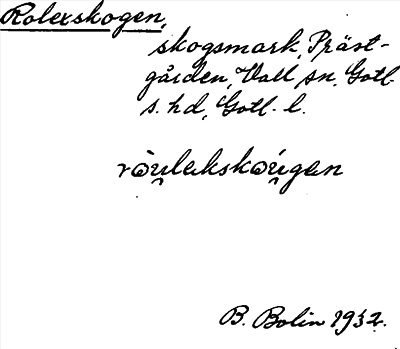 Rolexskogen,
skogsmark, Präst-
gården, Vall sn, Gotl.
s. hd, Gotl. l.
ròu̯lekskòu̯gen
B. Bolin 1932.